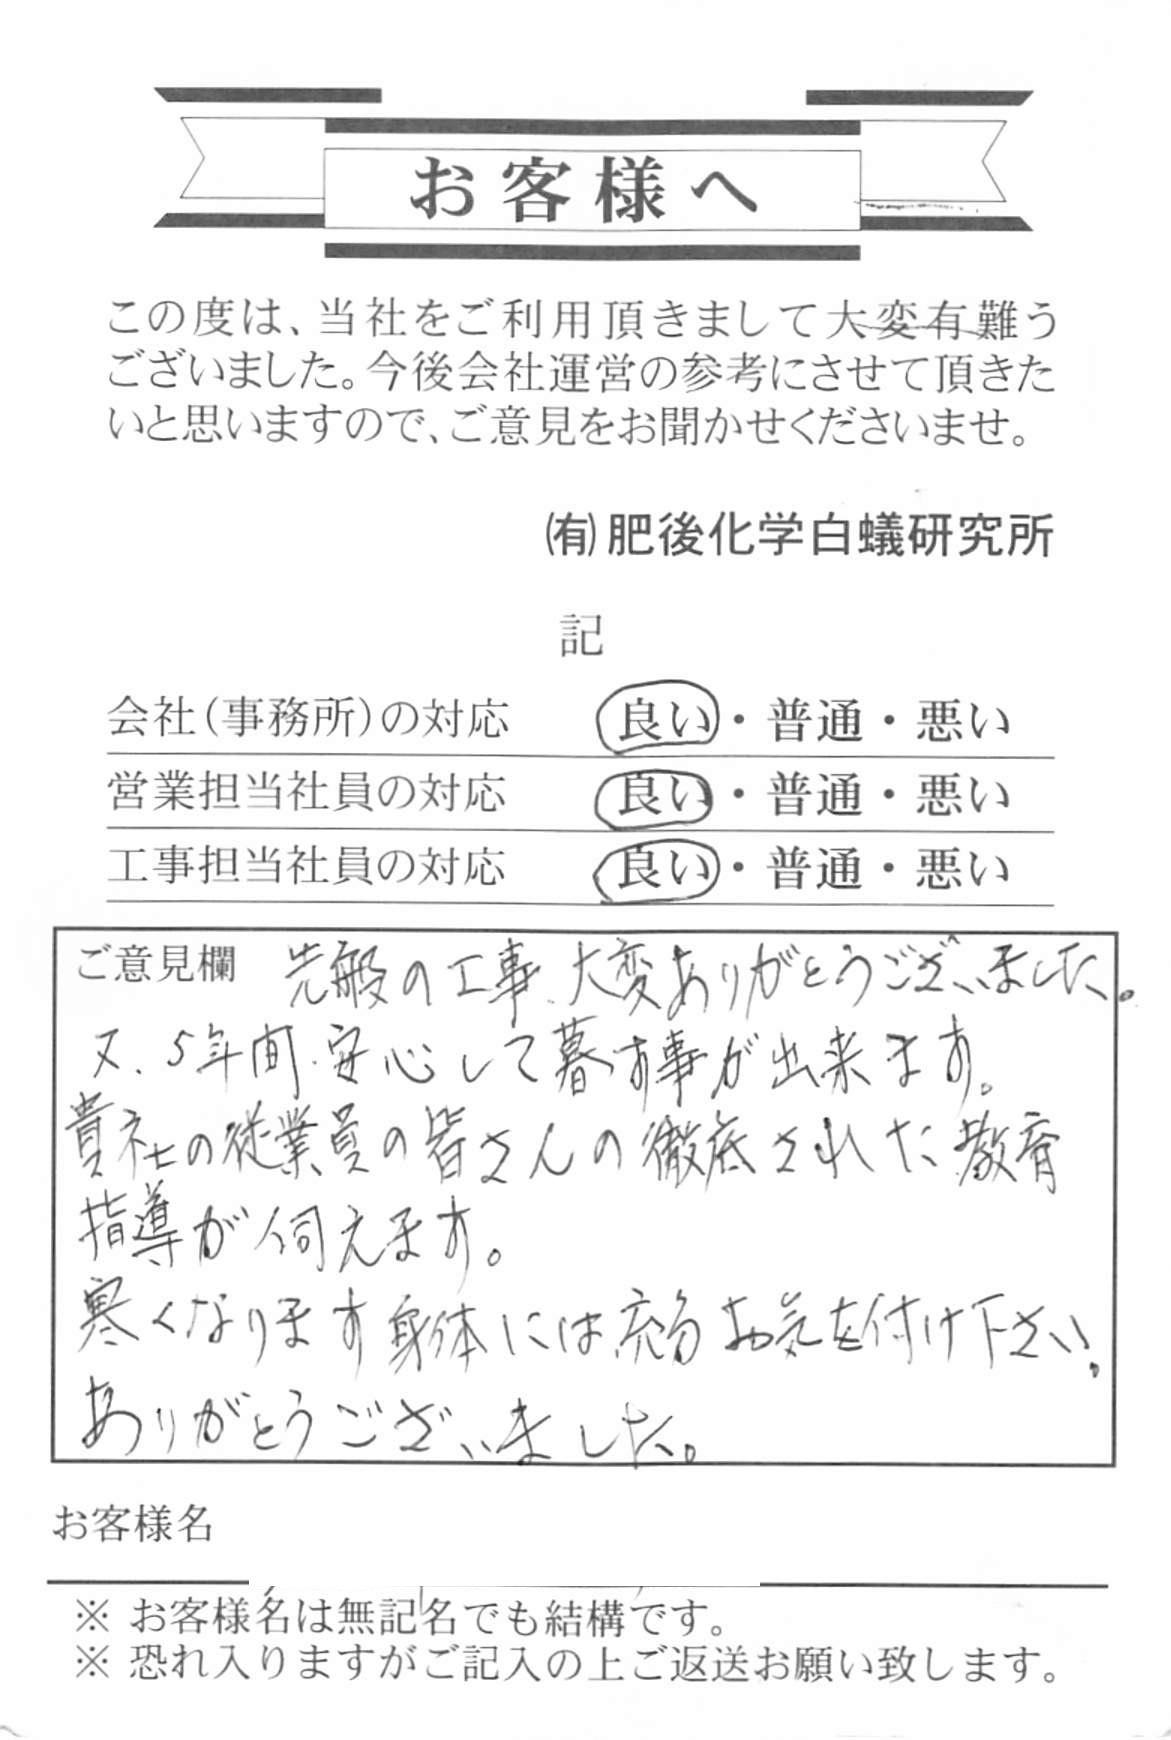 お客様へ
この度は、当社をご利用頂きまして大変有難う
ございました。今後会社運営の参考にさせて頂きた
いと思いますので、ご意見をお聞かせくださいませ。
㈲肥後化学白蟻研究所
記
会社(事務所)の対応 良い・普通・悪い
営業担当社員の対応 良い・普通・悪い
工事担当社員の対応 良い・普通・悪い
ご意見欄 先般の工事、大変ありがとうございました。
又、5年間、安心して暮す事が出来ます。
貴社の従業員の皆さんの徹底された教育
指導が伺えます。
寒くなります身体には充分お気を付け下さい。
ありがとうございました。
お客様名
※ お客様名は無記名でも結構です。
※ 恐れ入りますがご記入の上ご返送お願い致します。